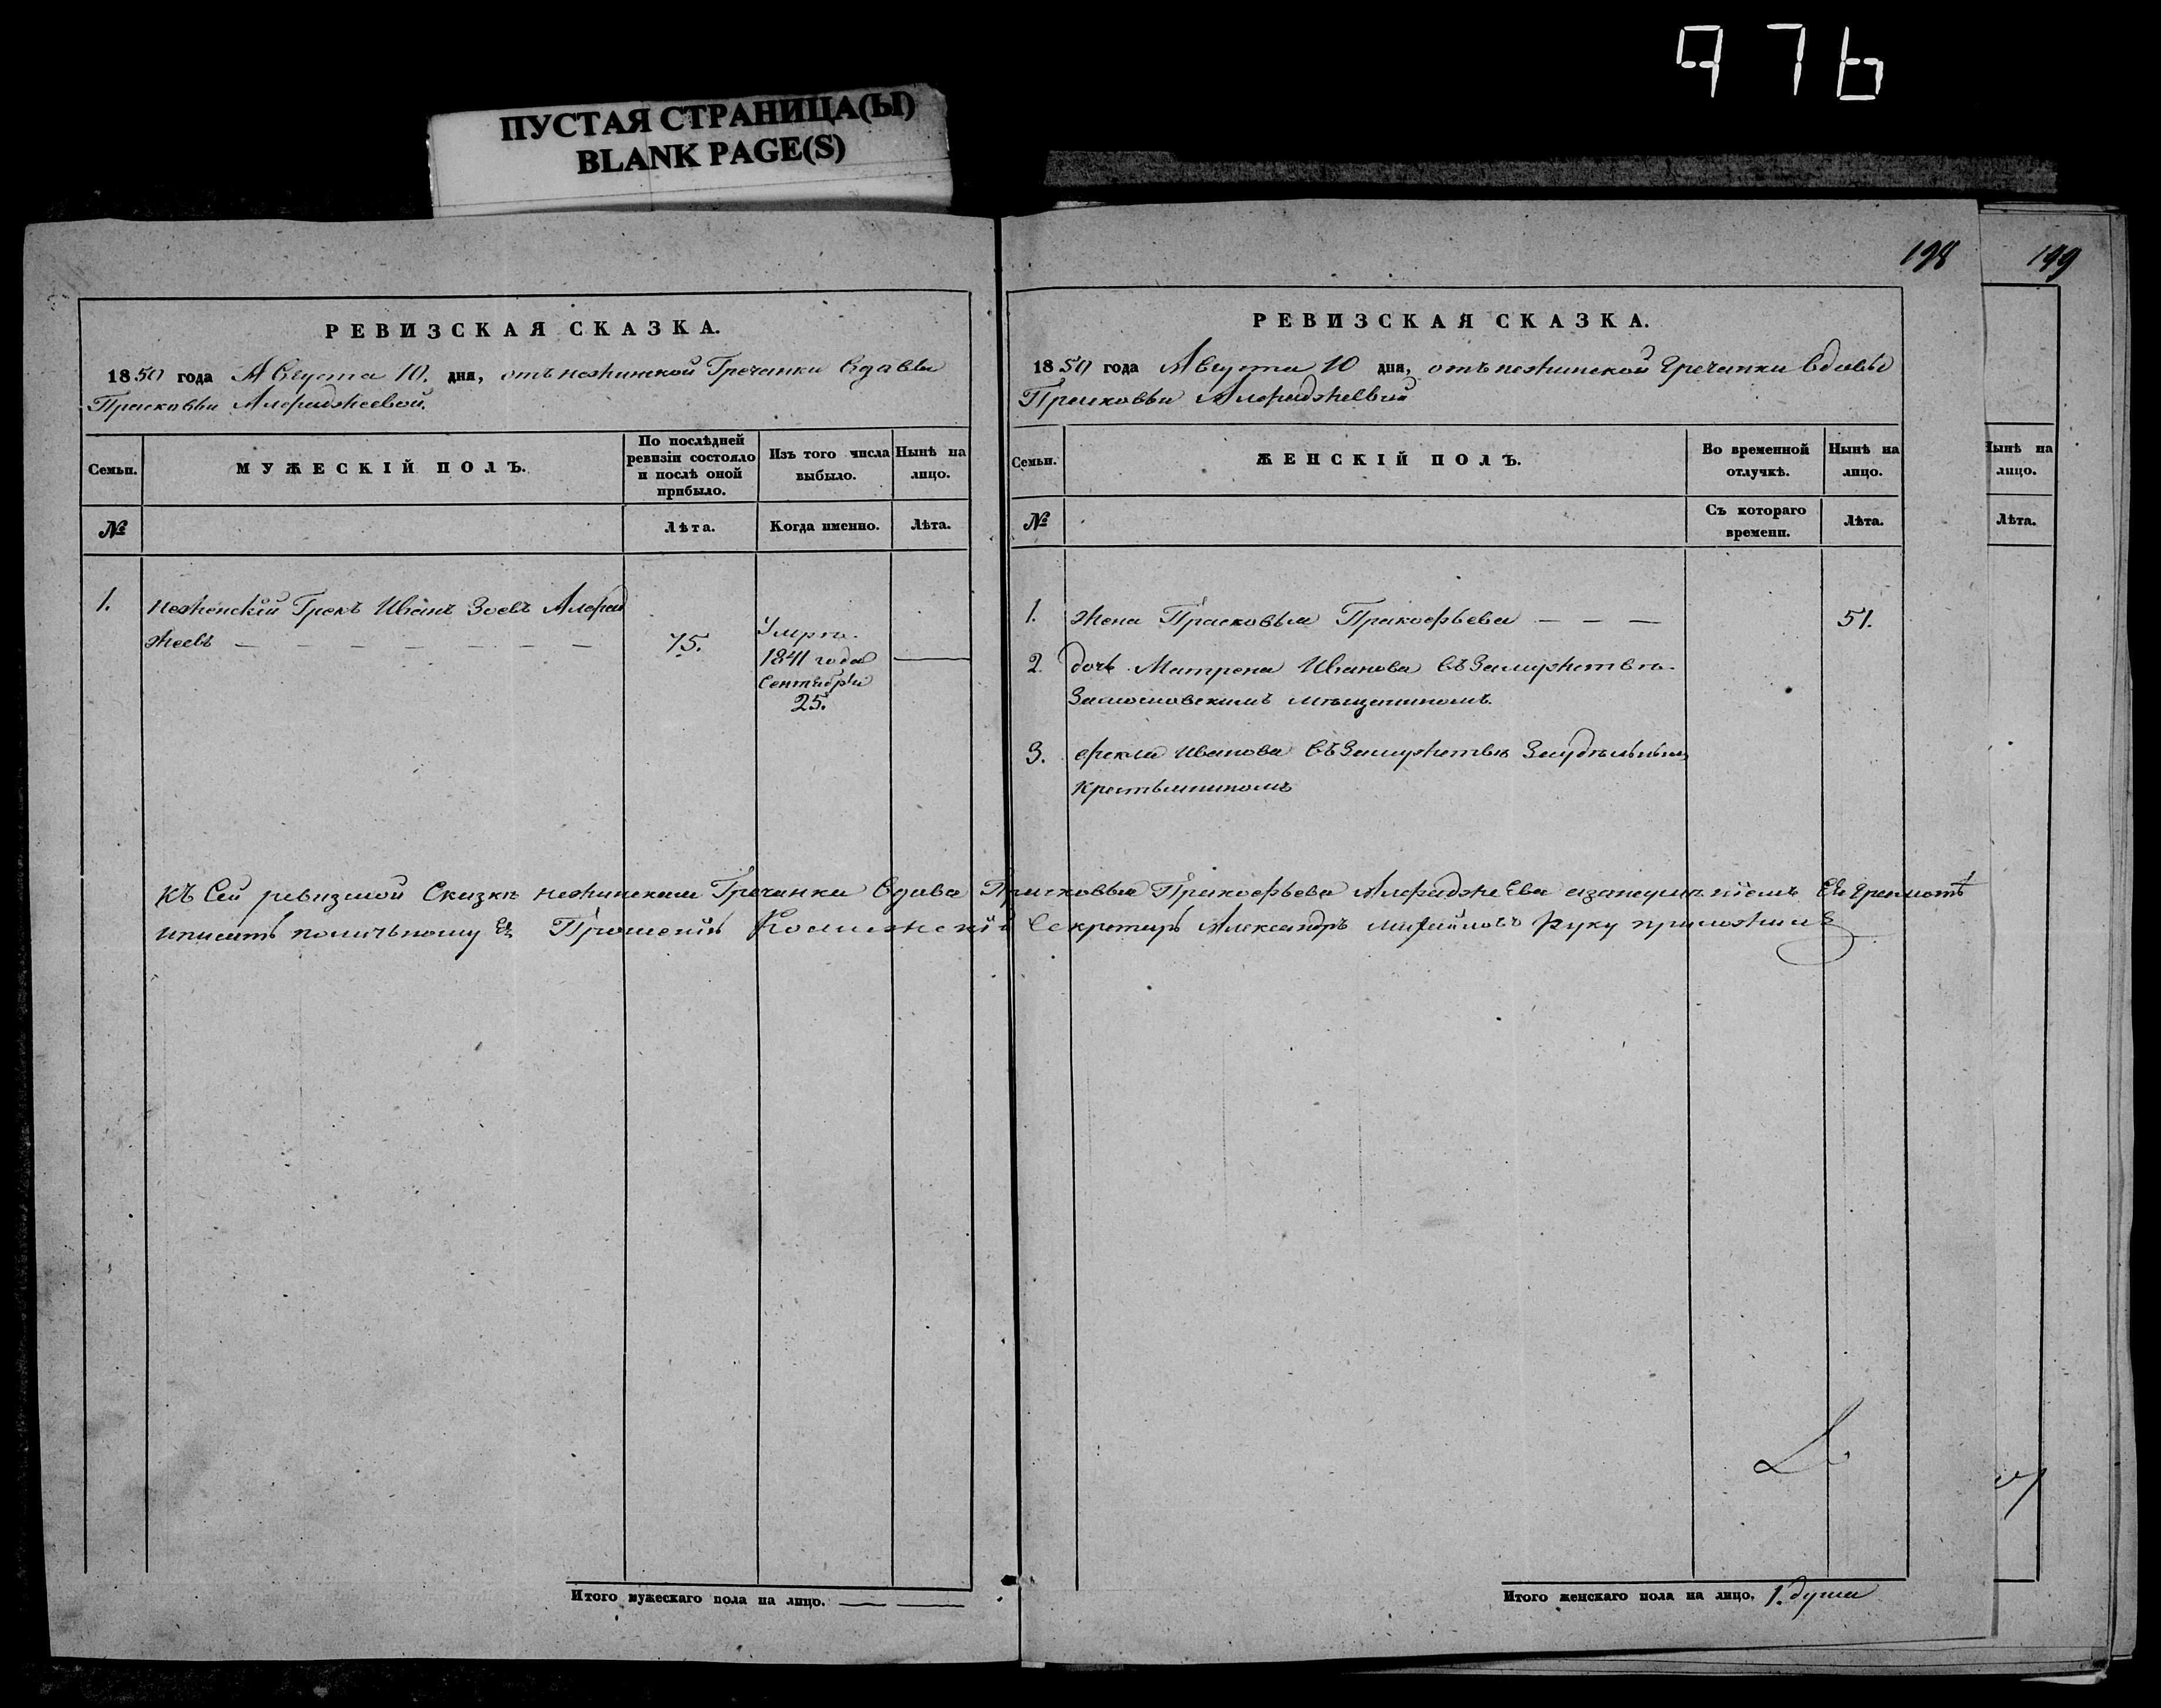 976
ПУСТАЯ СТРАНИЦА(Ы)
BLANK PAGE(S)
РЕВИЗСКАЯ СКАЗКА.
1850 года Августа 10. дня, отъ нежинской Гречанки Вдавы
Прасковьи Алфиджеевой.
Семьи.
МУЖЕСКІЙ ПОЛЪ.
По послѣдней ревизіи состояло и послѣ оной прибыло.
Изъ того числа выбыло.
Нынѣ на лицо.
№
Лѣта.
Когда именно.
Лѣта.
1. Неженскій Грекъ Иванъ Зоевъ
жеевъ — — — — — — — 75.
Умръ
1841 года
Сентября
25.
198
РЕВИЗСКАЯ СКАЗКА.
1850 года Августа 10 дня, отъ нежинской Гречанки вдовы
Прасковьи
Семьи.
ЖЕНСКІЙ ПОЛЪ.
Во временной отлучкѣ.
Нынѣ на лицо.
№
Съ котораго времени.
Лѣта.
1. Жена Прасковья Пракофьева — — — 51.
2. дочь Матрена Иванова въ Замужствѣ
мѣщениномъ.
3. фекла Иванова въ Замужствѣ
крестьянином
къ Сей ревизкой Сказкѣ нежинская Гречанка Вдава Прасковья Пракофьева
Секретарь Александръ Михайловъ Руку приложилъ
Итого мужескаго пола на лицо. — —
Итого женскаго пола на лицо. 1. душа
199
Нынѣ на лицо.
Лѣта.